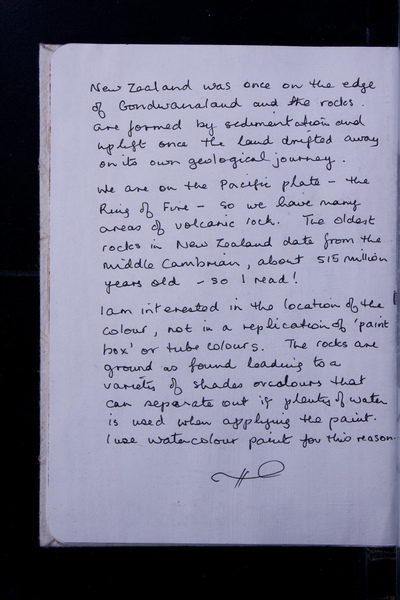 New Zealand was once on the edge
of Gondwanaland and the rocks.
are formed by sedimentation and
uplift once the land drifted away
on its own geological journey.
We are on the Pacific plate - the
Ring of Fire - so we have many
areas of volcanic rock. The oldest
rocks in New Zealand date from the
middle Cambrian, about 515 million
years old - so I read!
I am interested in the location of the
colour, not in a replication of 'paint
box' or tube colours. The rocks are
ground as found leading to a
variety of shades or colours that
can separate out if plenty of water
is used when applying the paint.
I use watercolour paint for this reason.